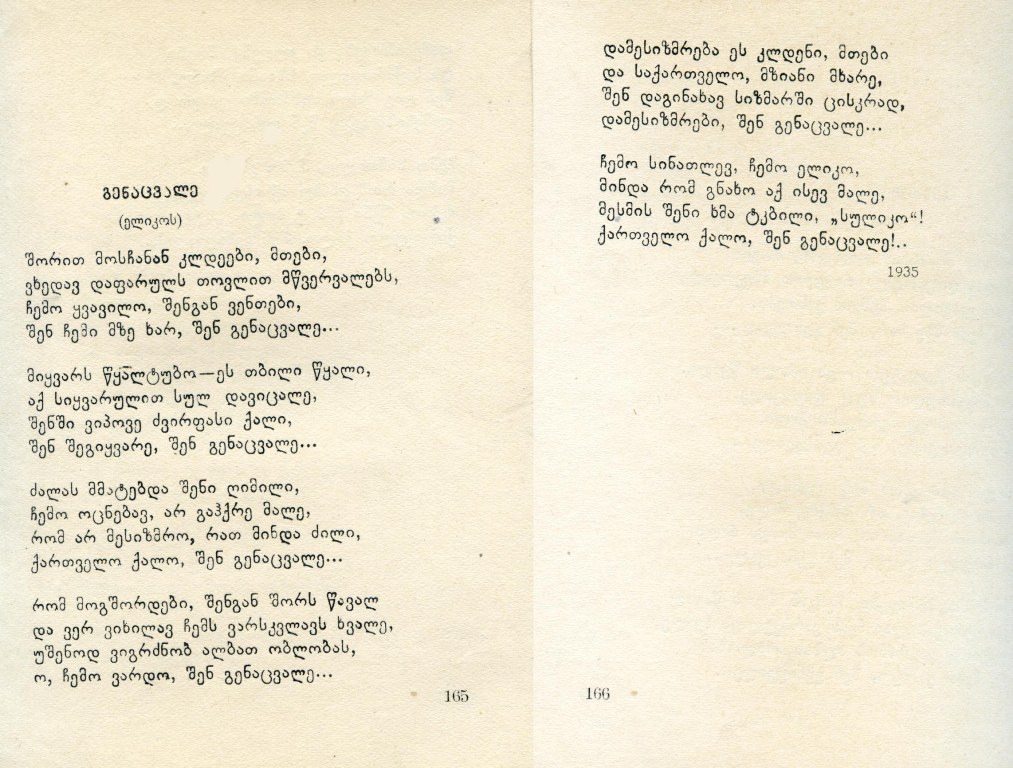 გენაცვალე
(ელიკოს)
შორით მოსჩანან კლდეები, მთები,
ვხედავ დაფარულს თოვლით მწვერვალებს,
ჩემო ყვავილო, შენგან ვენთები,
შენ ჩემი მზე ხარ, შენ გენაცვალე...
მიყვარს წყალტუბო—ეს თბილი წყალი,
აქ სიყვარულით სულ დავიცალე,
შენში ვიპოვე ძვირფასი ქალი,
შენ შეგიყვარე, შენ გენაცვალე...
ძალას მმატებდა შენი ღიმილი,
ჩემო ოცნებავ, არ გაჰქრე მალე,
რომ არ მესიზმრო, რათ მინდა ძილი,
ქართველო ქალო, შენ გენაცვალე...
რომ მოგშორდები, შენგან შორს წავალ
და ვერ ვიხილავ ჩემს ვარსკვლავს ხვალე,
უშენოდ ვიგრძნობ ალბათ ობლობას,
ო, ჩემო ვარდო, შენ გენაცვალე...
165
დამესიზმრება ეს კლდენი, მთები
და საქართველო, მზიანი მხარე,
შენ დაგინახავ სიზმარში ცისკრად,
დამესიზმრები, შენ გენაცვალე...
ჩემო სინათლევ, ჩემო ელიკო,
მინდა რომ გნახო აქ ისევ მალე,
მესმის შენი ხმა ტკბილი, „სულიკო“!
ქართველო ქალო, შენ გენაცვალე!..
1935
166